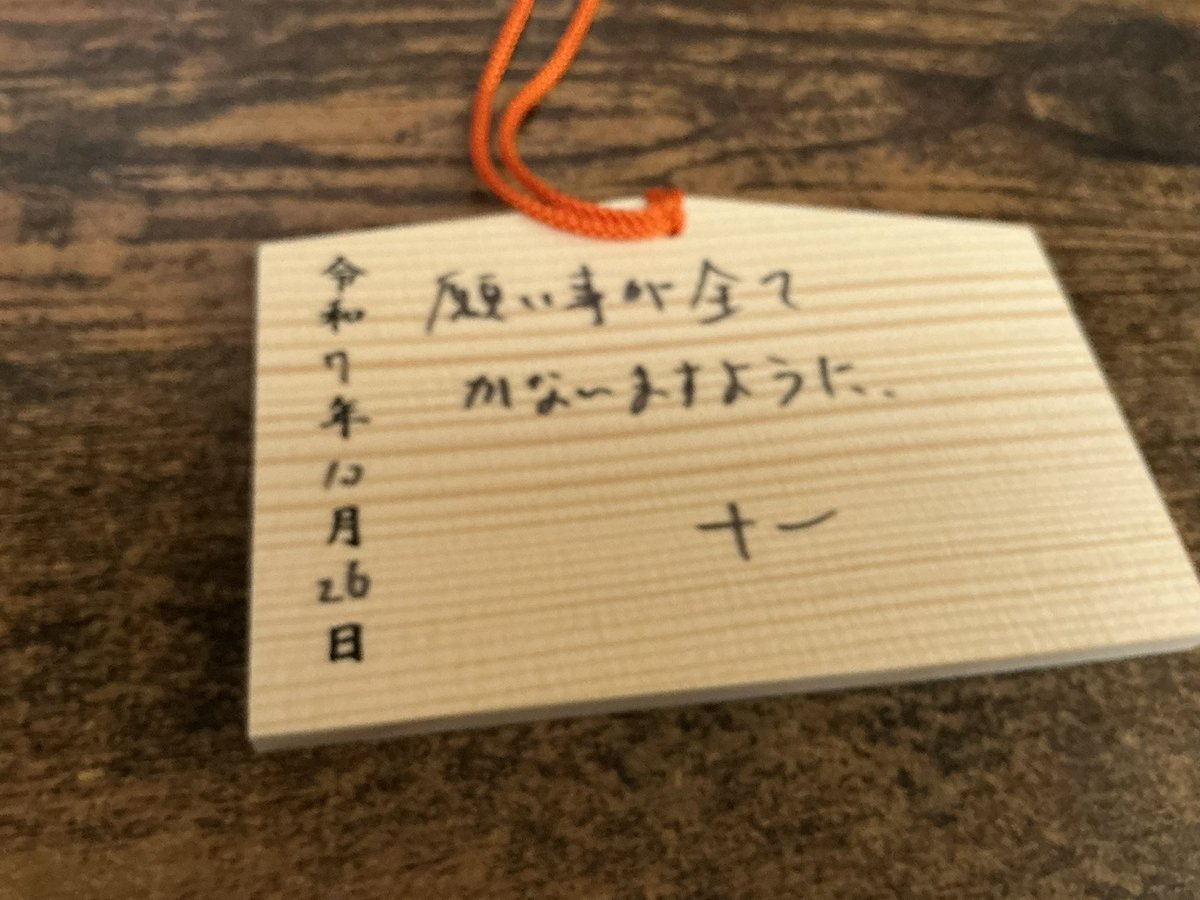 令和7年10月26日
願い事が全て
かないますように.
十一